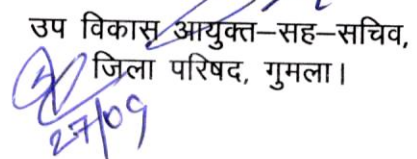 उप विकास आयुक्त–सह–सचिव,
जिला परिषद, गुमला।
27/09